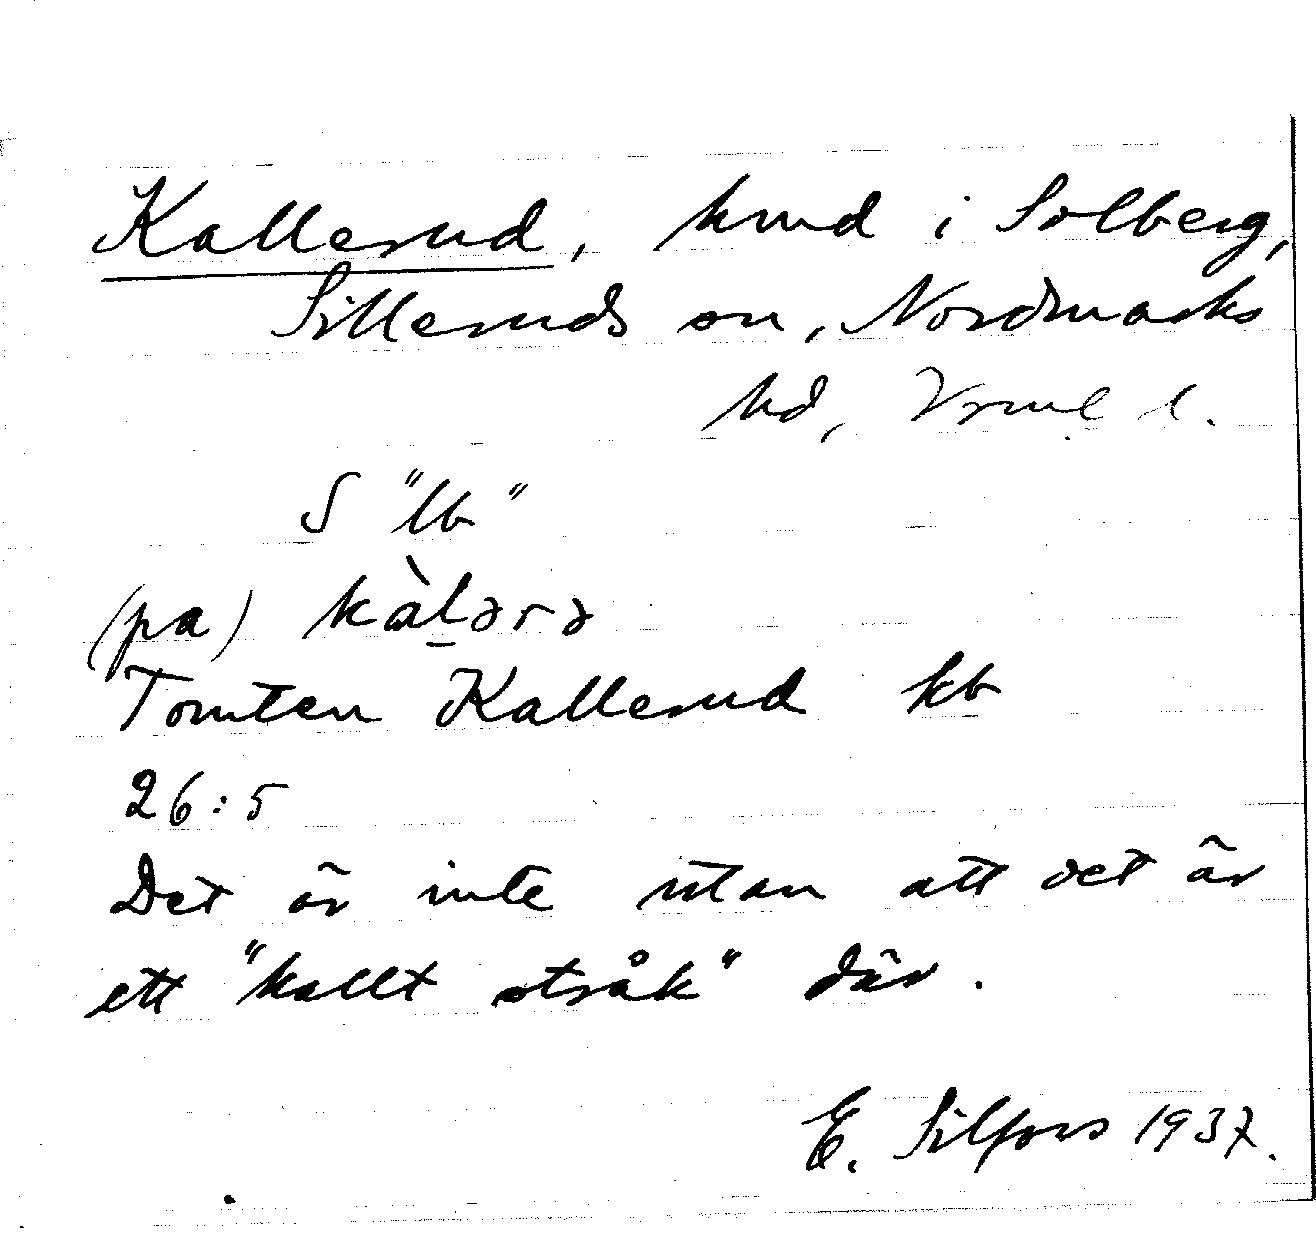 Kallerud, hmd i Solberg,
Silleruds sn, Nordmarks
hd, Vrml l.
S "lb"
(pa) kàl̠ərə
Tomten Kallerud kb
26:5
Det är inte utan att det är
ett "kallt stråk" där.
E. Silfors 1937.